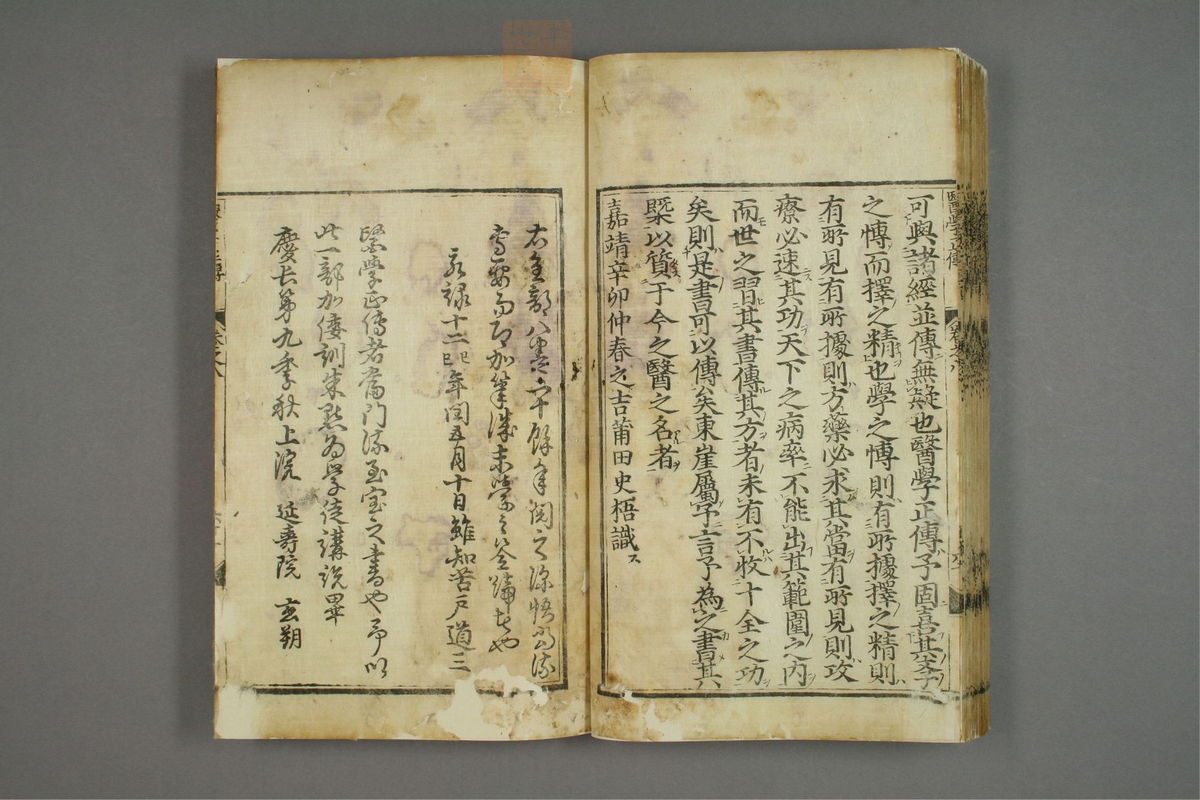 醫學正傳
卷之八
可與諸經並傳無疑也醫學正傳予固喜其学
之博而擇之精也學之博則有所據擇之精則
有所見有所據則方藥必求其當有所見則攻
療必速其功天下之病率不能出其範圍之內
而世之習其書傳其方者未有不收十全之功
矣則是書可以傳矣東崖屬予言予為之書其
槩以質于今之醫之名者
嘉靖辛卯仲春之吉莆田史梧識
右全部八
永禄十二己巳年閏五月十日雖知苦戸道三
醫學正傳者當門流至宝之書也予以
此一部加倭訓朱點為学徒講説畢
慶長第九季秋上浣 延壽院 玄朔